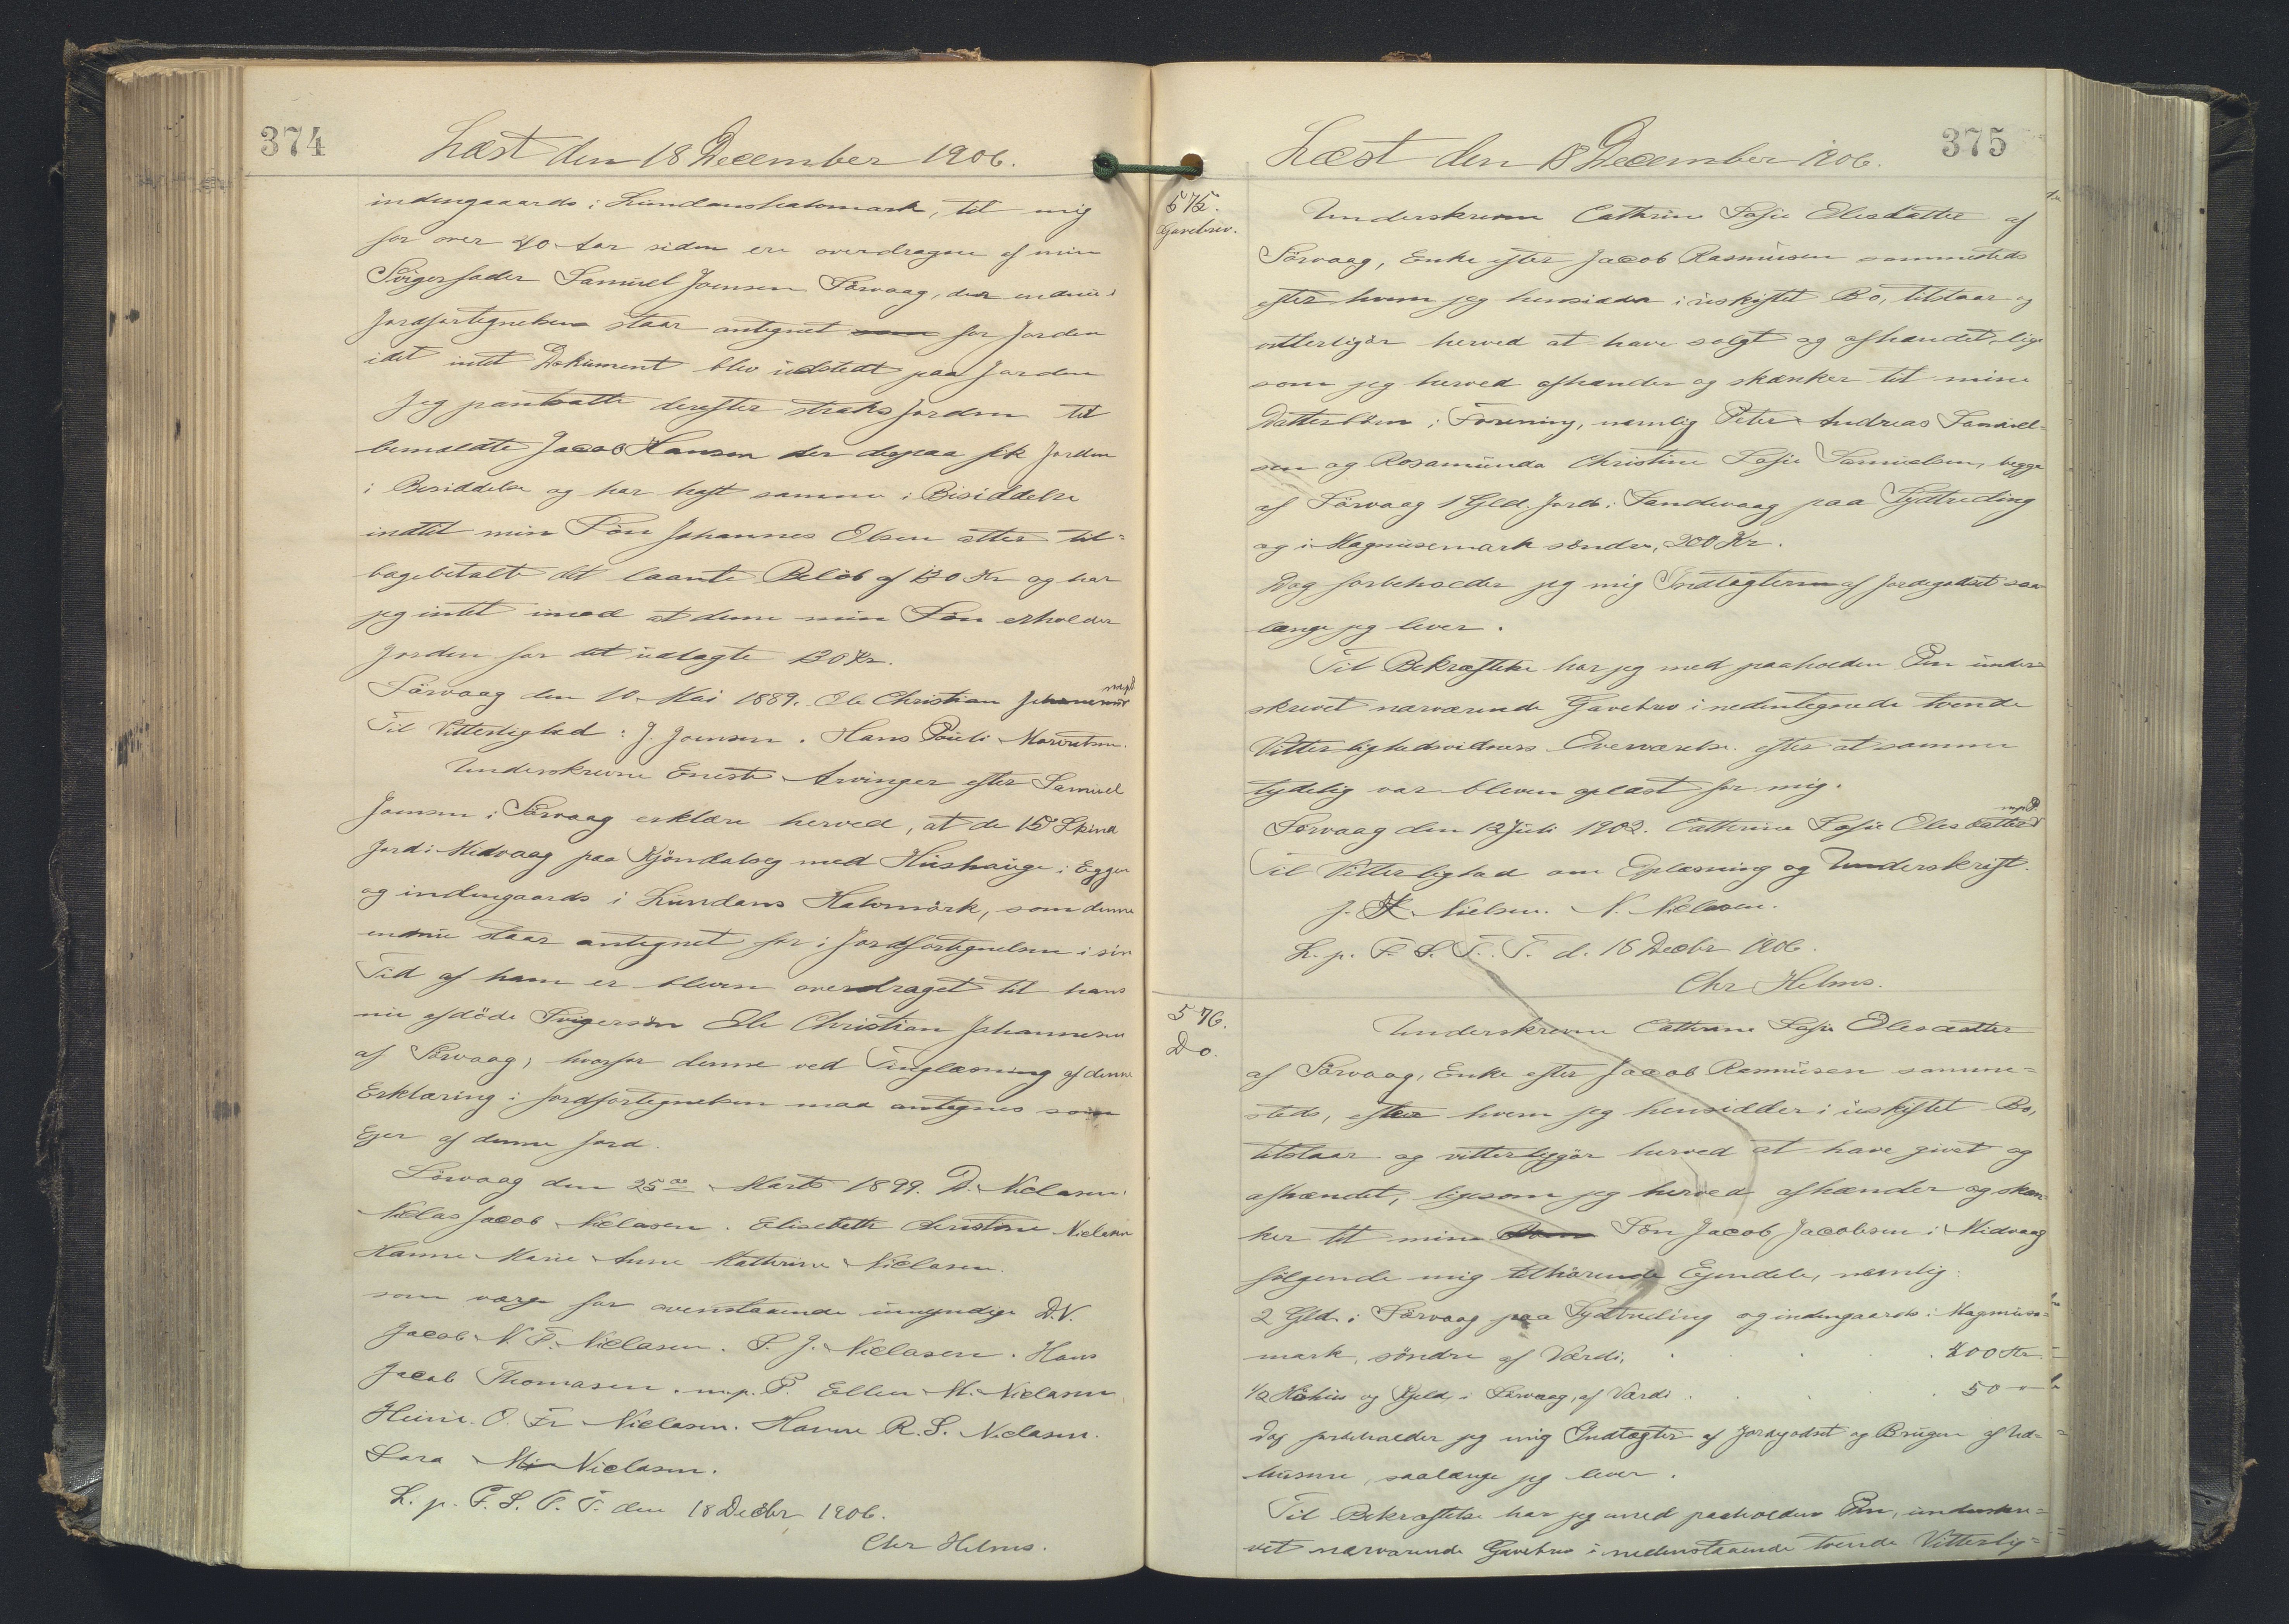 374
Læst den 18 December 1906.
indengaards i Lundanshalvmark, til mig
for over 40 Aar siden ere overdragne af min
Svigerfader Samuel Joensen Sörvaag, der endnu i
Jordfortegnelsen staar antegnet som for Jorden
idet intet Dokument blev udstedt paa Jorden
Jeg pantsatte derefter straks Jorden til
bemeldte Jacob Hansen der derpaa fik Jorden
i Besiddelse og har haft samme i Bisiddelse
indtil min Sön Johannes Olsen atter til=
bagebetalte det laante Belöb af 130 Kr og har
jeg intet imod at denne min Sön erholder
Jorden for det udlagte 130 Kr.
Sörvaag den 10 Mai 1889. Ole Christian Johannesen mpP
Til Vitterlighed: J. Joensen. Hans Pauli
Underskrevne Eneste Arvinger efter Samuel
Joensen i Sörvaag erklære herved, at de 15 Skind
Jord i Midvaag paa Kjöndalseg med Hushauge i Eggen
og indengaards i Lundans Halvmörk, som denne
endnu staar antegnet for i Jordfortegnelsen i sin
Tid af ham er bleven overdraget til hans
nu afdöde Svigersön Ole Christian Johannesen
af Sörvaag, hvorfor denne ved Tinglæsning af denne
Erklæring i Jordfortegnelsen maa antegnes som
Ejer af denne Jord.
Sörvaag den 25de Marts 1899. D. Niclasen.
Niclas Jacob Niclasen. Elisebeth Christine Niclasen
Hanne Marie Anne Kathrine Niclasen.
som værge for ovenstaaende umyndige D.N.
Jacob N. P. Niclasen. P. J. Niclasen. Hans
Jacob Thomasen m.p.P. Ellen M. Niclasen
Heine O. Fr Niclasen. Hanne R. S. Niclasen.
Sara M Niclasen.
L. p. F. S. P. T. den 18 Decbr 1906.
Chr Helms.
375
Læst den 18 December 1906.
575.
Gavebrev.
Underskrevne Cathrine Sofie Olesdatter af
Sörvaag, Enke efter Jacob Rasmusen sammesteds
efter hvem jeg hensidder i uskiftet Bo, tilstaar og
vitterligör herved at have solgt og afhændet, lige
som jeg herved afhænder og skænker til mine
Datterbörn i Forening, nemlig Peter Andreas Samuel=
sen og Rosamunda Christine Sofie Samuelsen, begge
af Sörvaag 1 Gld. Jord i Sandevaag paa Sydtreding
og i Magnusemark söndre, 200 Kr.
Dog forbeholder jeg mig Indtægterne af Jordegodset saa
længe jeg lever.
Til Bekræftelse har jeg med paaholden Pen under=
skrevet nærværende Gavebrev i nedentegnede tvende
Vitterlighedsvidners Overværelse efter at samme
tydelig var bleven oplæst for mig.
Sörvaag den 12 Juli 1902. Cathrine Sofie Olesdatter mpP.
Til Vitterlighed om Oplæsning og Underskrift.
J. K. Nielsen. N. Niclasen.
L. p. F. S. T. T. d. 18 Decbr 1906.
Chr Helms.
576.
Do.
Underskrevne Cathrine Sofie Olesdatter
af Sörvaag, Enke efter Jacob Rasmusen samme=
steds, efter hvem jeg hensidder i uskiftet Bo,
tilstaar og vitterliggör herved at have givet og
afhændet, ligesom jeg herved afhænder og skæn=
ker til mine Sön Jacob Jacobsen i Midvaag
fölgende mig tilhörende Ejendele, nemlig:
2 Gld. i Sörvaag paa Sydtreding og indengaards i Magnuse=
mark, söndre af Værdi, . . . . 400 Kr.
1/2 og Kjeld, i Sörvaag, af Værdi . . . 50 -
Dog forbeholder jeg mig Indtægter af Jordegodset og Brugen af Ud=
husene, saalænge jeg lever.
Til Bekræftelse har jeg med paaholden Pen, underskre=
vet nærværende Gavebrev i nedenstaaende tvende Vitterlig=